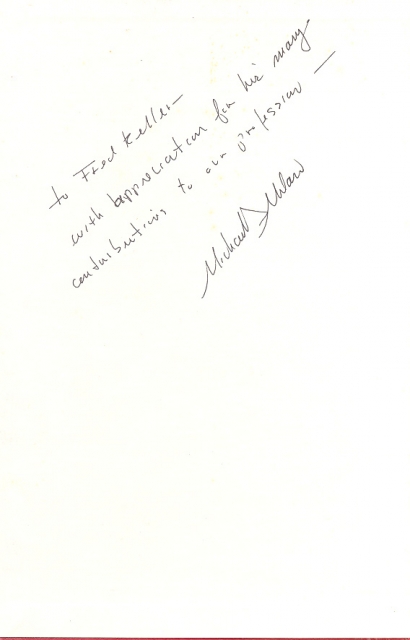 to Fred Keller—
with appreciation for his many
contributions to our profession —
Michael